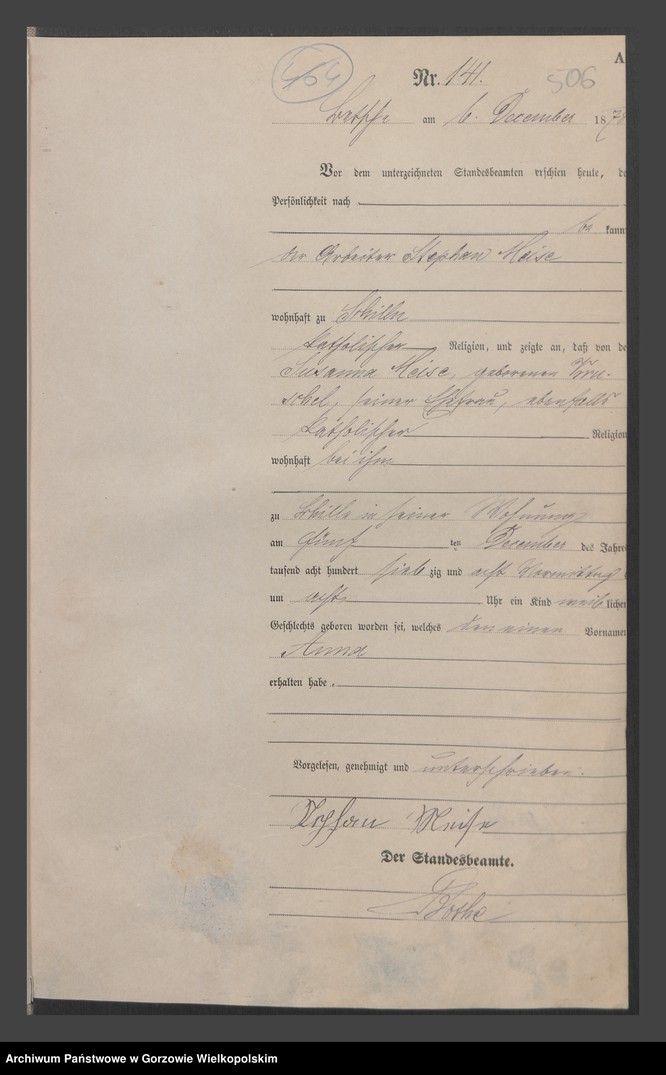 A
464
Nr. 141.
506
Betsche am 6. December 1878
Vor dem unterzeichneten Standesbeamten erschien heute, de
Persönlichkeit nach
be kann
der Arbeiter Stephan Meise
wohnhaft zu Schilln
katholischer Religion, und zeigte an, daß von de
Susanna Meise, geborenen Kru-
schel, seiner Ehefrau, ebenfalls
katholischer Religion
wohnhaft bei ihm
zu Schilln in seiner Wohnung
am fünf ten December des Jahre
tausend acht hundert sieb zig und acht Vormittag
um acht Uhr ein Kind weib lichen
Geschlechts geboren worden sei, welches den einen Vornamen
Anna
erhalten habe.
Vorgelesen, genehmigt und unterschrieben.
Stephan Meise
Der Standesbeamte.
Bothe
Archiwum Państwowe w Gorzowie Wielkopolskim